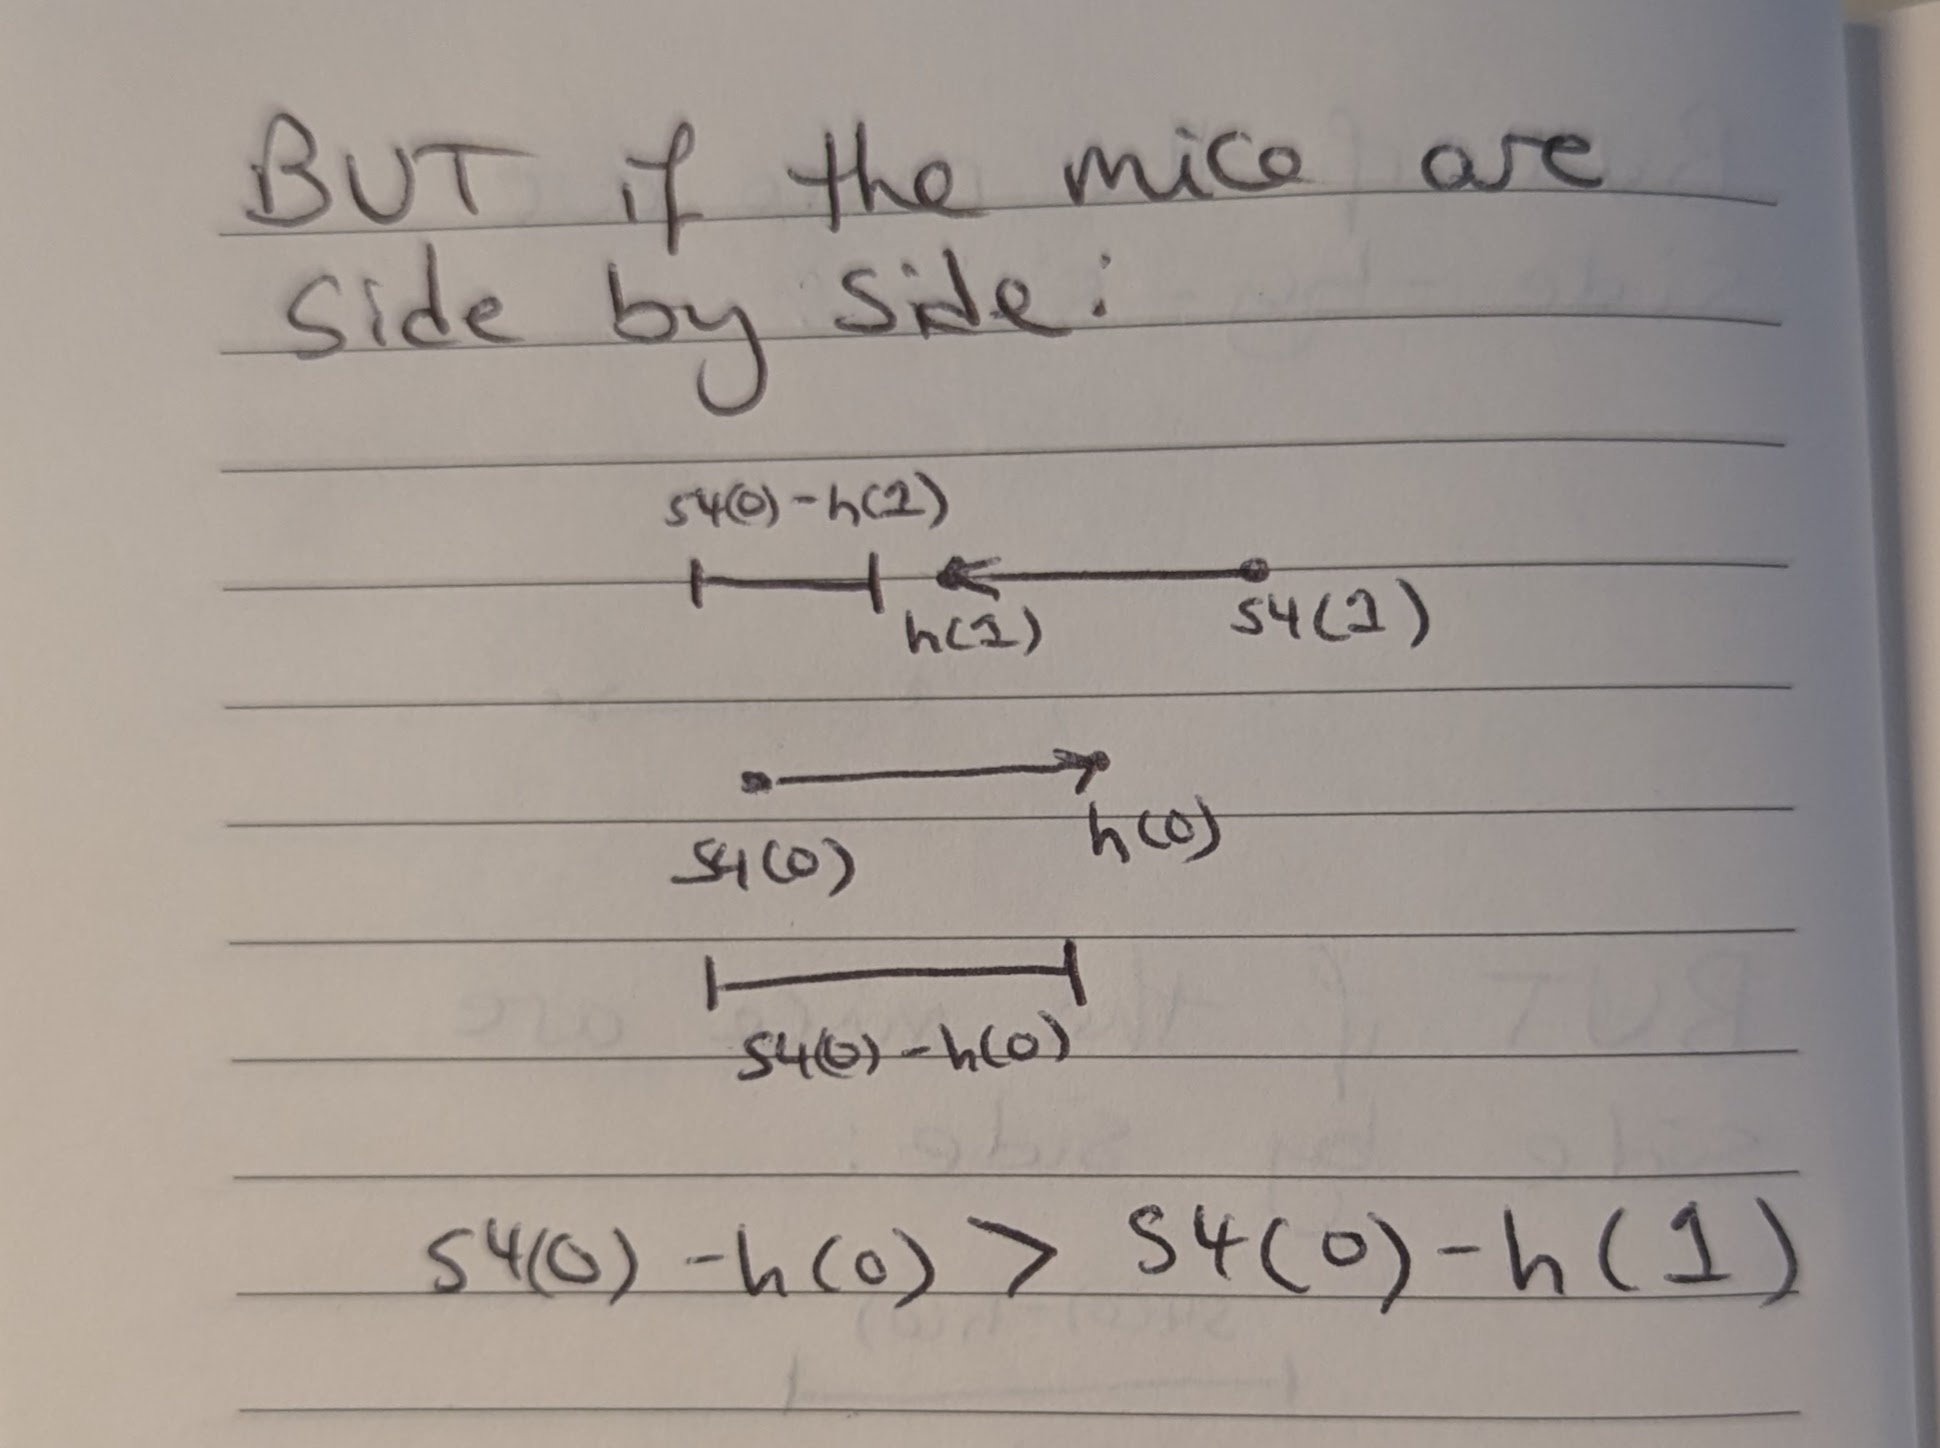 BUT if the mice are
side by side:
S4(0) - h(1)
h(1)
S4(1)
S4(0)
h(0)
S4(0) - h(0)
S4(0) - h(0) > S4(0) - h(1)